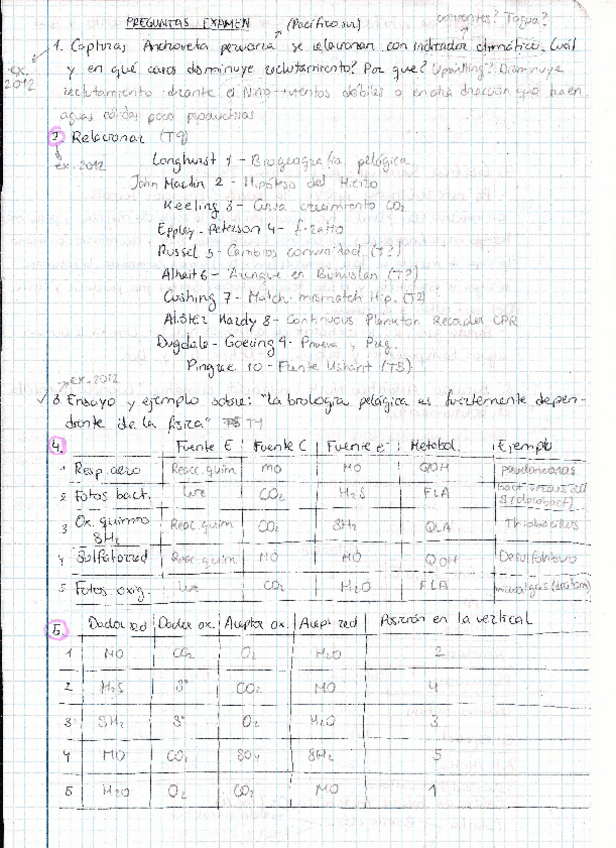 PREGUNTAS EXAMEN (Pacífico sur) corrientes? Tagua?
1. Capturas Anchoveta peruana se relacionan con indicador climático. Cuál
ex. 2012
y en qué casos disminuye reclutamiento? Por qué? Upwelling? Disminuye
reclutamiento durante el Niño
aguas cálidas poco productivas
2 Relacionar (T9)
ex. 2012
Longhurst 1 - Biogeografía pelágica
John Martin 2 - Hipótesis del Hierro
Keeling 3 - Curva crecimiento CO2
Eppley - Peterson 4 - f-ratio
Russel 5 - Cambios comunidad. (T?)
Alheit 6 - Arenque en Bohuslan (T?)
Cushing 7 - Match-mismatch Hip. (T2)
Alister Hardy 8 - Continuous Plankton Recorder CPR
Dugdale - Goering 9 - Prueva y Preg.
Pingree 10 - Frente Ushant (T5)
EX. 2012
3 Ensayo y ejemplo sobre: "La biología pelágica es fuertemente depen-
diente de la física" T4
4. Fuente E Fuente C Fuente e- Metabol. Ejemplo
1 Resp. aero Reacc. quim MO MO QOH pseudomonas
2 Fotos bact. Luz CO2 H2S FLA
3 Ox. quimio SH2 Reac. quim CO2 SH2 QLA Thiobacillus
4 Sulfatored Reac. quim MO MO QOH Desulfobibrio
5 Fotos. oxig. Luz CO2 H2O FLA microalgas (diatom)
5. Dador red Dador ox. Aceptor ox. Acept red Posición en la vertical
1 MO CO2 O2 H2O 2
2 H2S S° CO2 MO 4
3 SH2 S° O2 H2O 3
4 MO CO2 SO4 SH2 5
5 H2O O2 CO2 MO 1